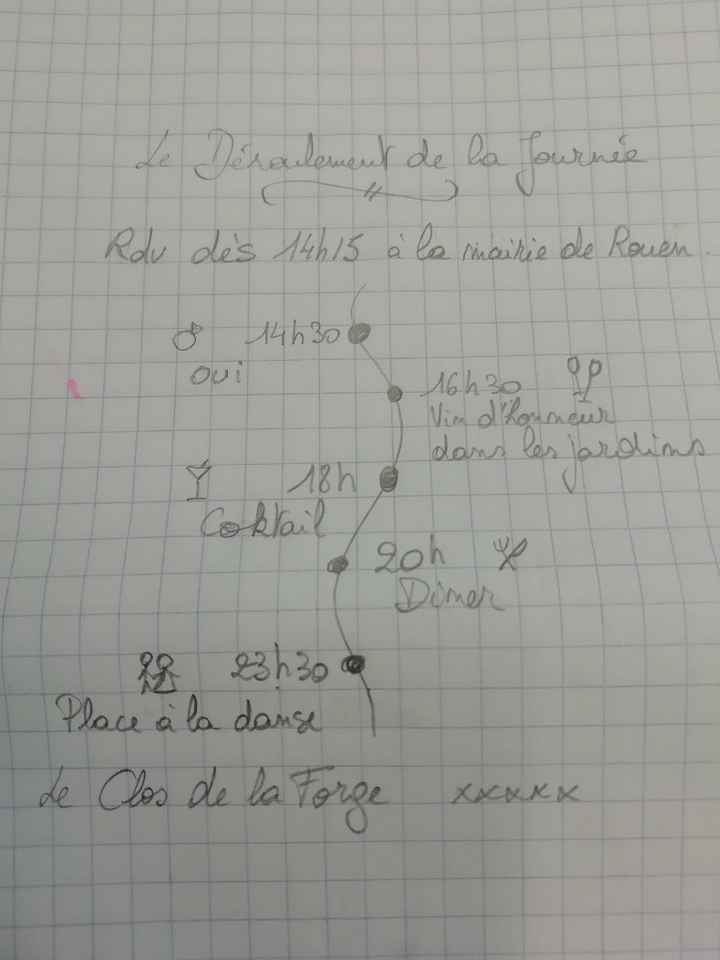 Le Déroulement de la Journée
Rdv dès 14h15 à la mairie de Rouen.
14h30
oui
16h30
Vin d'honneur
dans les jardins
18h
Coktail
20h
Dîner
23h30
Place à la danse
Le Clos de la Forge xxxxx